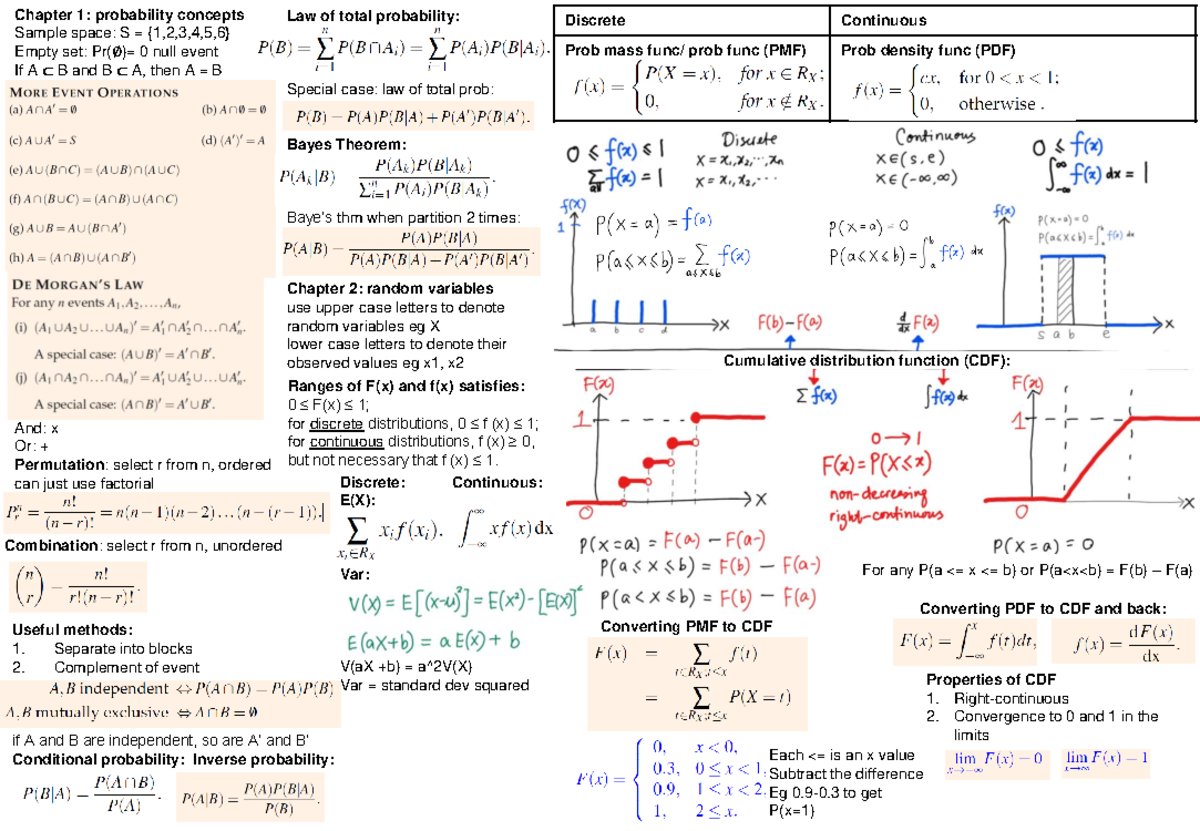 Chapter 1: probability concepts
Sample space: S = {1,2,3,4,5,6}
Empty set: Pr(∅)= 0 null event
If A ⊂ B and B ⊂ A, then A = B
MORE EVENT OPERATIONS
(a) A∩A′ = ∅ (b) A∩∅ = ∅
(c) A∪A′ = S (d) (A′)′ = A
(e) A∪(B∩C) = (A∪B)∩(A∪C)
(f) A∩(B∪C) = (A∩B)∪(A∩C)
(g) A∪B = A∪(B∩A′)
(h) A = (A∩B)∪(A∩B′)
DE MORGAN'S LAW
For any n events A₁,A₂,…,Aₙ,
(i) (A₁∪A₂∪…∪Aₙ)′ = A′₁∩A′₂∩…∩A′ₙ.
A special case: (A∪B)′ = A′∩B′.
(j) (A₁∩A₂∩…∩Aₙ)′ = A′₁∪A′₂∪…∪A′ₙ.
A special case: (A∩B)′ = A′∪B′.
And: x
Or: +
Permutation: select r from n, ordered
can just use factorial
Pⁿᵣ = n!/(n−r)! = n(n−1)(n−2)…(n−(r−1)).
Combination: select r from n, unordered
(n r) = n!/r!(n−r)!.
Useful methods:
1. Separate into blocks
2. Complement of event
A,B independent ⇔ P(A∩B) = P(A)P(B)
A,B mutually exclusive ⇔ A∩B = ∅
if A and B are independent, so are A' and B'
Conditional probability: Inverse probability:
P(B|A) = P(A∩B)/P(A). P(A|B) = P(A)P(B|A)/P(B).
Law of total probability:
P(B) = ∑ⁿᵢ₌₁ P(B∩Aᵢ) = ∑ⁿᵢ₌₁ P(Aᵢ)P(B|Aᵢ).
Special case: law of total prob:
P(B) = P(A)P(B|A)+P(A′)P(B|A′).
Bayes Theorem:
P(Aₖ|B) = P(Aₖ)P(B|Aₖ)/∑ⁿᵢ₌₁ P(Aᵢ)P(B|Aᵢ).
Baye's thm when partition 2 times:
P(A|B) = P(A)P(B|A)/P(A)P(B|A)+P(A′)P(B|A′).
Chapter 2: random variables
use upper case letters to denote
random variables eg X
lower case letters to denote their
observed values eg x1, x2
Ranges of F(x) and f(x) satisfies:
0 ≤ F(x) ≤ 1;
for discrete distributions, 0 ≤ f (x) ≤ 1;
for continuous distributions, f (x) ≥ 0,
but not necessary that f (x) ≤ 1.
Discrete: Continuous:
E(X):
∑ xᵢ∈R_X xᵢ f(xᵢ). ∫^∞_−∞ x f(x) dx
Var:
V(X) = E[(x−μ)²] = E(X²) − [E(X)]²
E(aX+b) = a E(X) + b
V(aX +b) = a^2V(X)
Var = standard dev squared
Discrete Continuous
Prob mass func/ prob func (PMF) Prob density func (PDF)
f(x) = { P(X = x), for x ∈ R_X; f(x) = { cx, for 0 < x < 1;
0, for x ∉ R_X. 0, otherwise .
0 ≤ f(x) ≤ 1 Discrete Continuous 0 ≤ f(x)
∑ all f(x) = 1 x = x₁,x₂,⋯,xₙ x∈(s,e) ∫^∞_−∞ f(x) dx = 1
x = x₁,x₂,⋯ x∈(−∞,∞)
f(x)
1
P(X=a) = f(a)
P(a≤X≤b) = ∑ a≤x≤b f(x)
a b c d x
P(X=a) = 0
P(a≤X≤b) = ∫ᵇₐ f(x) dx
f(x)
P(X=a)=0
P(a≤X≤b)=∫ᵇₐ f(x) dx
s a b e x
F(b)−F(a) d/dx F(x)
Cumulative distribution function (CDF):
∑ f(x) ∫f(x) dx
F(x)
1
0 x
0 → 1
F(x) = P(X≤x)
non-decreasing
right-continuous
F(x)
1
0 x
P(X=a) = F(a) − F(a-)
P(a≤X≤b) = F(b) − F(a-)
P(a<X≤b) = F(b) − F(a)
P(X=a) = 0
For any P(a <= x <= b) or P(a<x<b) = F(b) – F(a)
Converting PMF to CDF
F(x) = ∑ t∈R_X;t≤x f(t)
= ∑ t∈R_X;t≤x P(X = t)
F(x) = { 0, x < 0,
0.3, 0 ≤ x < 1,
0.9, 1 ≤ x < 2,
1, 2 ≤ x.
Each <= is an x value
Subtract the difference
Eg 0.9-0.3 to get
P(x=1)
Converting PDF to CDF and back:
F(x) = ∫ˣ_−∞ f(t)dt, f(x) = dF(x)/dx.
Properties of CDF
1. Right-continuous
2. Convergence to 0 and 1 in the
limits
lim x→−∞ F(x) = 0 lim x→∞ F(x) = 1